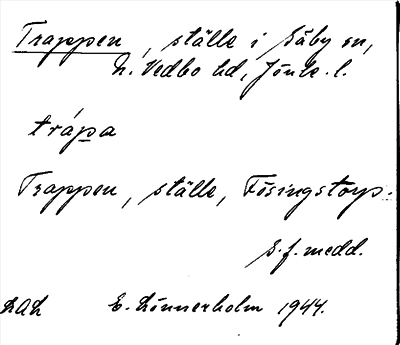 Trappen, ställe i Säby sn,
N. Vedbo hd, Jönk. l.
trápa
Trappen, ställe, Fösingstorp.
S. f. medd.
LAL E. Lönnerholm 1944.